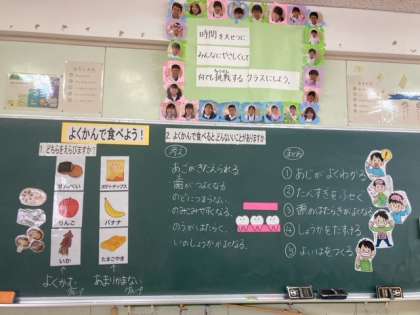 時間を大せつに
みんなにやさしくして
何でも挑戦するクラスにしよう。
よくかんで食べよう！
1. どちらをえらびますか？
せんべい
ポテトチップス
りんご
バナナ
いか
たまごやき
よくかむ
あまりかまない
2. よくかんで食べるとどんないいことがありますか
あごがきたえられる
歯がつよくなる
のどにつまらない。
のみこみやすくなる。
のうがはたらく。
いのしょうかがよくなる。
① あじがよくわかる
② たべすぎをふせぐ
③ 歯のはたらきがよくなる
④ しょうかをたすける
⑤ よいはをつくる